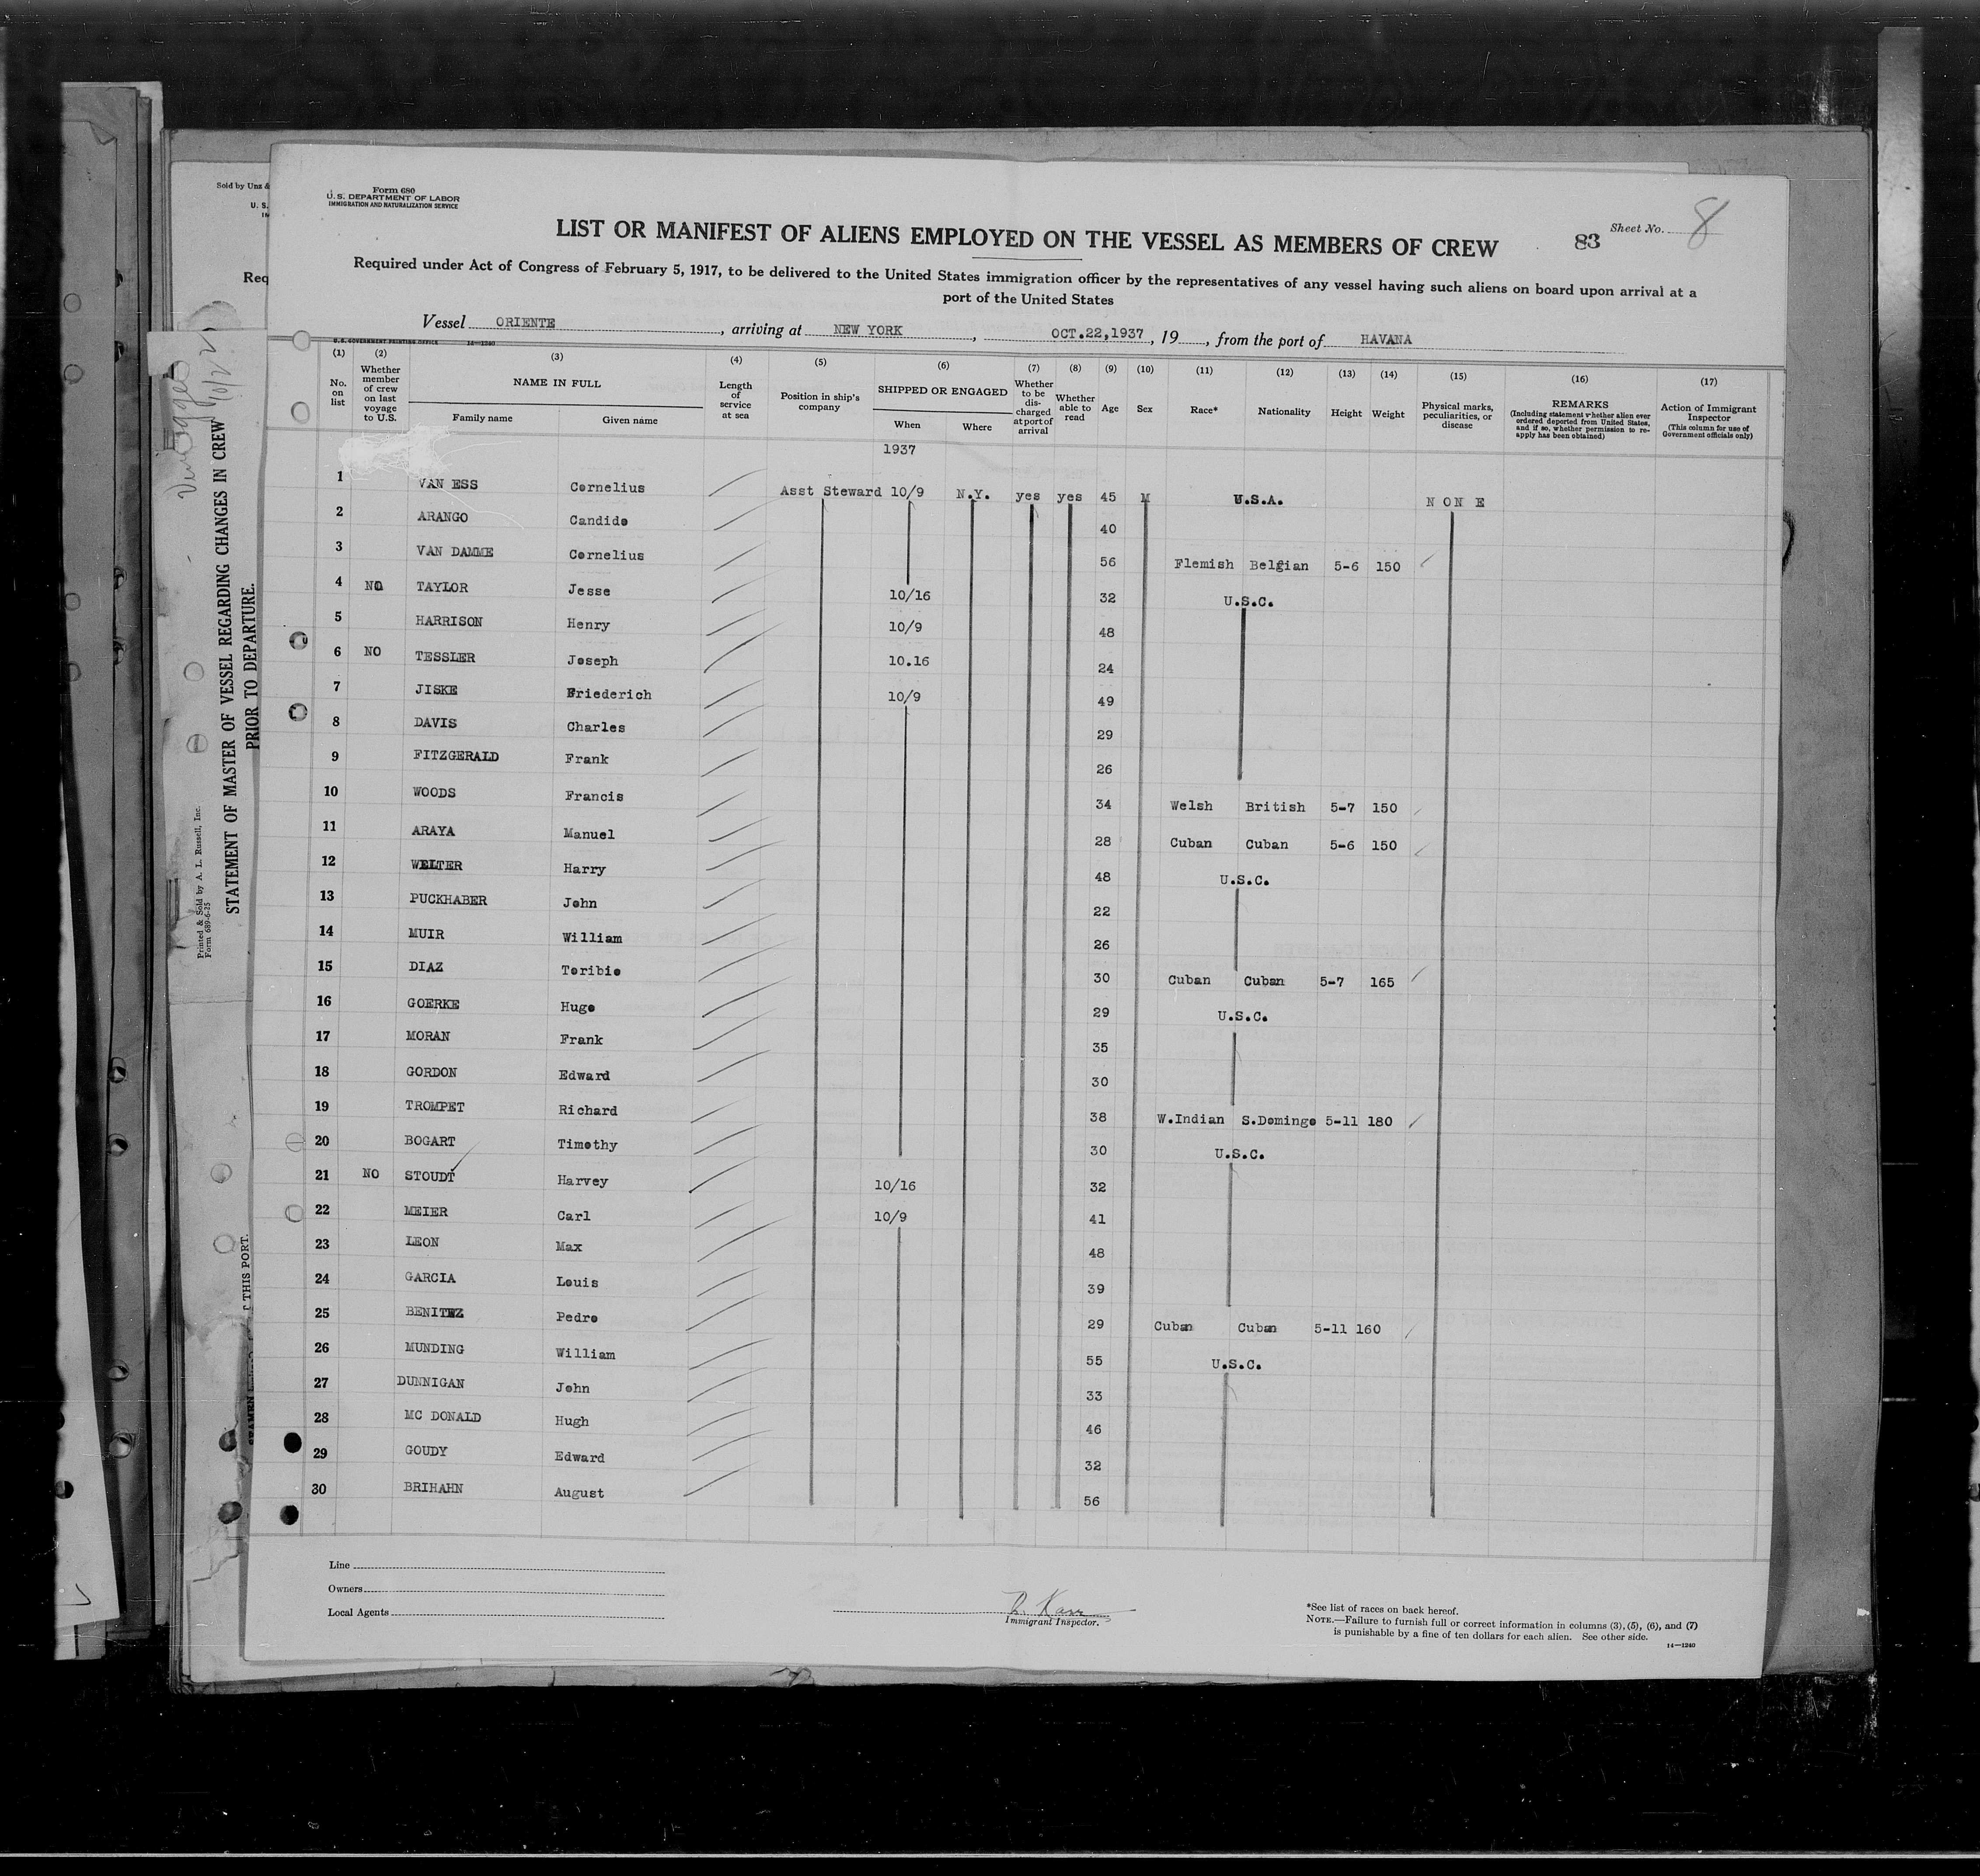 Sold by Unz &
U. S.
Req
Form 680
U. S. DEPARTMENT OF LABOR
IMMIGRATION AND NATURALIZATION SERVICE
LIST OR MANIFEST OF ALIENS EMPLOYED ON THE VESSEL AS MEMBERS OF CREW
83 Sheet No. 8
Required under Act of Congress of February 5, 1917, to be delivered to the United States immigration officer by the representatives of any vessel having such aliens on board upon arrival at a
port of the United States
Vessel ORIENTE, arriving at NEW YORK, OCT.22,1937, 19, from the port of HAVANA
U.S. GOVERNMENT PRINTING OFFICE 14—1240
(1) No. on list
(2) Whether member of crew on last voyage to U.S.
(3) NAME IN FULL
Family name Given name
(4) Length of service at sea
(5) Position in ship's company
(6) SHIPPED OR ENGAGED
When Where
(7) Whether to be discharged at port of arrival
(8) Whether able to read
(9) Age
(10) Sex
(11) Race*
(12) Nationality
(13) Height
(14) Weight
(15) Physical marks, peculiarities, or disease
(16) REMARKS
(Including statement whether alien ever ordered deported from United States, and if so, whether permission to re-apply has been obtained)
(17) Action of Immigrant Inspector
(This column for use of Government officials only)
1937
1 VAN ESS Cornelius Asst Steward 10/9 N.Y. yes yes 45 M U.S.A. NONE
2 ARANGO Candido 40
3 VAN DAMME Cornelius 56 Flemish Belgian 5-6 150
4 NO TAYLOR Jesse 10/16 32 U.S.C.
5 HARRISON Henry 10/9 48
6 NO TESSLER Joseph 10.16 24
7 JISKE Friederich 10/9 49
8 DAVIS Charles 29
9 FITZGERALD Frank 26
10 WOODS Francis 34 Welsh British 5-7 150
11 ARAYA Manuel 28 Cuban Cuban 5-6 150
12 WELTER Harry 48 U.S.C.
13 PUCKHABER John 22
14 MUIR William 26
15 DIAZ Toribio 30 Cuban Cuban 5-7 165
16 GOERKE Hugo 29 U.S.C.
17 MORAN Frank 35
18 GORDON Edward 30
19 TROMPET Richard 38 W.Indian S.Domingo 5-11 180
20 BOGART Timothy 30 U.S.C.
21 NO STOUDT Harvey 10/16 32
22 MEIER Carl 10/9 41
23 LEON Max 48
24 GARCIA Louis 39
25 BENITEZ Pedro 29 Cuban Cuban 5-11 160
26 MUNDING William 55 U.S.C.
27 DUNNIGAN John 33
28 MC DONALD Hugh 46
29 GOUDY Edward 32
30 BRIHAHN August 56
Line
Owners
Local Agents
Immigrant Inspector.
*See list of races on back hereof.
NOTE.—Failure to furnish full or correct information in columns (3), (5), (6), and (7)
is punishable by a fine of ten dollars for each alien. See other side.
14—1240
STATEMENT OF MASTER OF VESSEL REGARDING CHANGES IN CREW
PRIOR TO DEPARTURE.
Printed & Sold by A. L. Russell, Inc.
Form 689-6-25
THIS PORT.